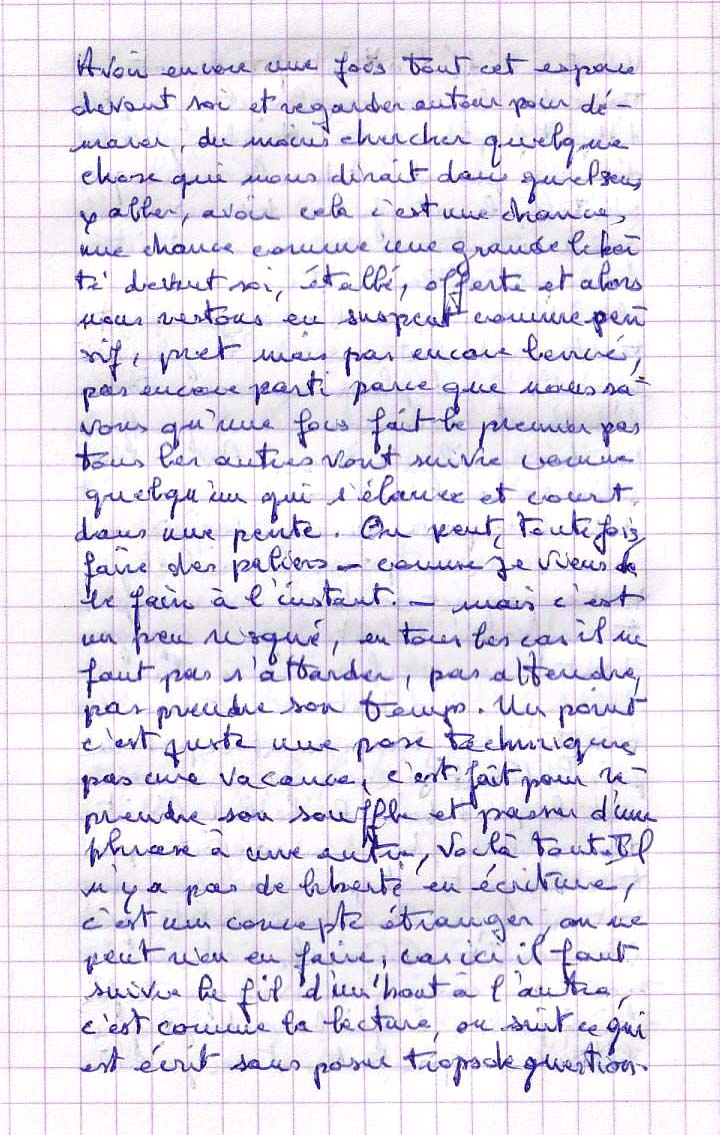 Avoir encore une fois tout cet espace
devant soi et regarder autour pour dé-
marrer, du moins chercher quelque
chose qui nous dirait dans quel sens
y aller, avoir cela c'est une chance,
une chance comme une grande liber
té devant soi, étalé, offerte et alors
nous restons en suspens comme pen
sif, pret mais pas encore lancé,
pas encore parti parce que nous sa-
vons qu'une fois fait le premier pas
tous les autres vont suivre comme
quelqu'un qui s'élance et court
dans une pente. On peut, toutefois,
faire des paliers – comme je viens de
le faire à l'instant. – mais c'est
un peu risqué, en tous les cas il ne
faut pas s'attarder, pas attendre,
pas prendre son temps. Un point
c'est juste une pose technique,
pas une vacance, c'est fait pour re-
prendre son souffle et passer d'une
phrase à une autre, voilà tout. Il
n'y a pas de liberté en écriture,
c'est un concepte étranger, on ne
peut rien en faire, car ici il faut
suivre le fil d'un bout à l'autre,
c'est comme la lecture, on suit ce qui
est écrit sans poser trops de question.